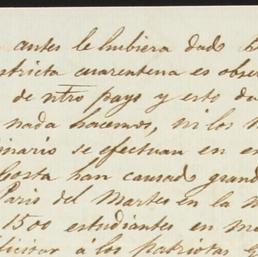 antes le hubiera dado
stricta cuarentena es obser
de ntro pays y esto da
nada hacemos, ni los
inario se efectuan en e
Gosta han causado grand
Paris del Martes en la
1500 estudiantes en m
licitar á los patriotas G